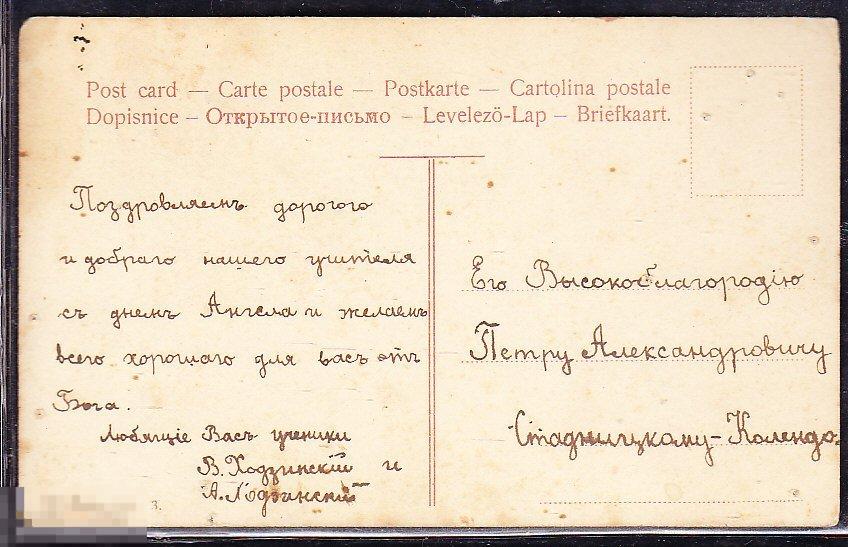 Post card — Carte postale — Postkarte — Cartolina postale
Dopisnice — Открытое-письмо — Levelezö-Lap — Briefkaart.
Поздравляемъ дорогого
и добраго нашего учителя
съ днемъ Ангела и желаемъ
всего хорошаго для васъ отъ
Бога.
Любящіе Васъ ученики
В. Ходзинскій и
А.
3.
Его Высокоблагородію
Петру Александровичу
Стадницкому-Колендо.